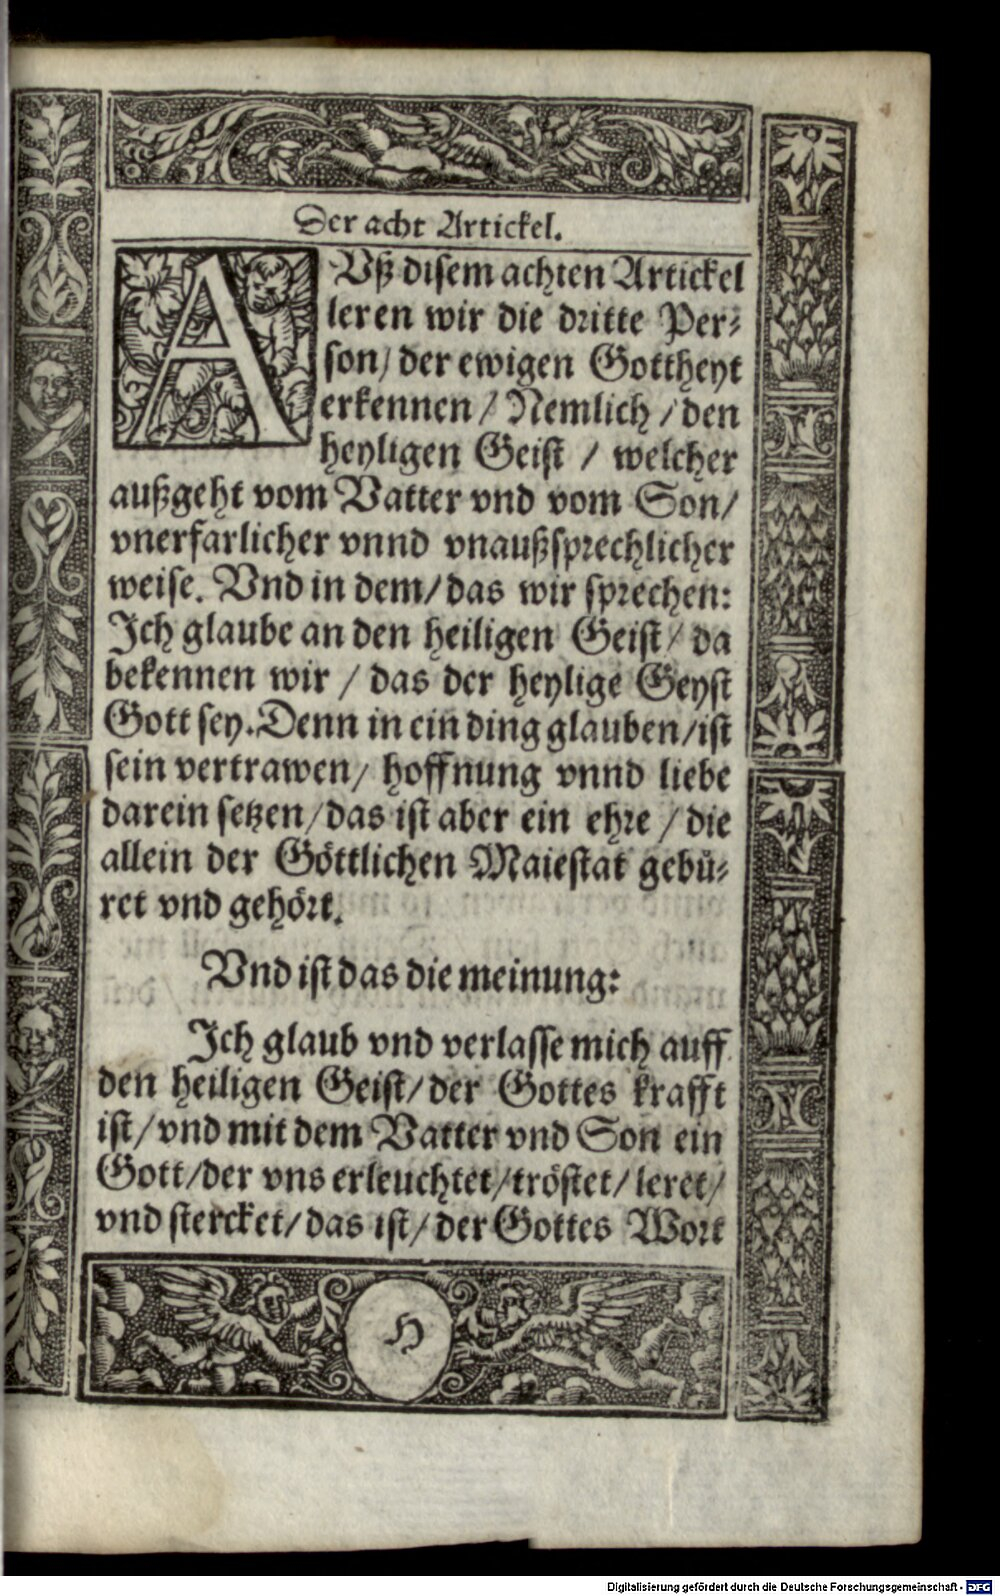 Der acht Artickel.
AVß disem achten Artickel
leren wir die dritte Per⸗
son/ der ewigen Gottheyt
erkennen / Nemlich / den
heyligen Geist / welcher
außgeht vom Vatter vnd vom Son/
vnerfarlicher vnnd vnaußsprechlicher
weise. Vnd in dem/ das wir sprechen:
Ich glaube an den heiligen Geist/ da
bekennen wir / das der heylige Geyst
Gott sey. Denn in ein ding glauben/ ist
sein vertrawen/ hoffnung vnnd liebe
darein setzen/ das ist aber ein ehre / die
allein der Göttlichen Maiestat gebü⸗
ret vnd gehört.
Vnd ist das die meinung:
Ich glaub vnd verlasse mich auff
den heiligen Geist/ der Gottes krafft
ist/ vnd mit dem Vatter vnd Son ein
Gott/ der vns erleuchtet/ tröstet/ leret/
vnd stercket/ das ist/ der Gottes Wort
H
Digitalisierung gefördert durch die Deutsche Forschungsgemeinschaft - DFG